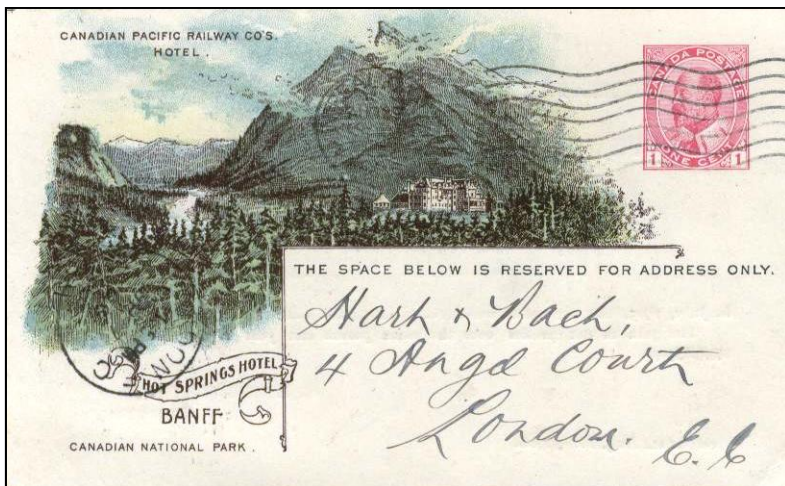 CANADIAN PACIFIC RAILWAY CO'S.
HOTEL.
CANADA POSTAGE
1 ONE CENT 1
THE SPACE BELOW IS RESERVED FOR ADDRESS ONLY.
Hart & Bach,
4 Angel Court
London. E.C
HOT SPRINGS HOTEL
BANFF
CANADIAN NATIONAL PARK.